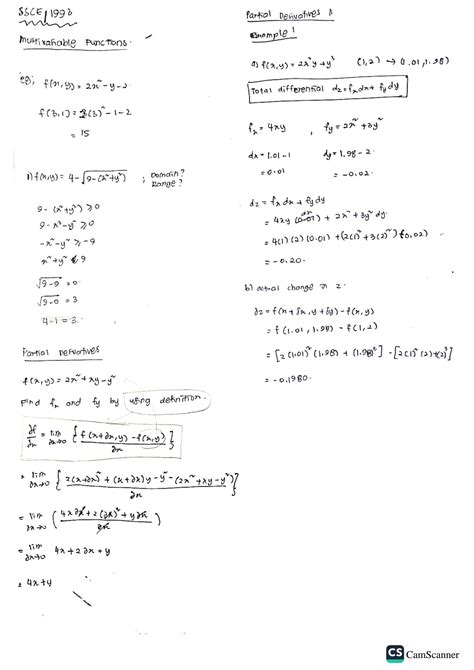 SSCE 1993
Multivariable Functions.
eg; f(x,y) = 2x² - y - 2
f(3,1) = 2(3)² - 1 - 2
= 15
1) f(x,y) = 4 - √9 - (x² + y²) ; Domain?
Range?
9 - (x² + y²) ≥ 0
9 - x² - y² ≥ 0
-x² - y² ≥ -9
x² + y² ≤ 9
√9-9 = 0
√9-0 = 3
4 - 1 = 3.
Partial Derivatives
f(x,y) = 2x² + xy - y²
Find fx and fy by using definition.
∂f/∂x = lim ∂x→0 { f(x+∂x,y) - f(x,y) / ∂x }
= lim ∂x→0 { 2(x+∂x)² + (x+∂x)y - y² - (2x² + xy - y²) / ∂x }
= lim ∂x→0 ( 4x∂x + 2(∂x)² + y∂x / ∂x )
= lim ∂x→0 4x + 2∂x + y
= 4x + y
Partial Derivatives
Example 1
a) f(x,y) = 2x²y + y³ (1,2) → (1.01, 1.98)
Total differential dz = fx dx + fy dy
fx = 4xy , fy = 2x² + 3y²
dx = 1.01 - 1 dy = 1.98 - 2
= 0.01 = -0.02.
dz = fx dx + fy dy
= 4xy dx + 2x² + 3y² dy
= 4(1)(2)(0.01) + (2(1)² + 3(2)²)(-0.02)
= -0.20.
b) actual change in z.
∂z = f(x + ∂x, y + ∂y) - f(x,y)
= f(1.01, 1.98) - f(1,2)
= [2(1.01)² (1.98) + (1.98)³] - [2(1)² (2) + (2)³]
= -0.1980.
CS CamScanner